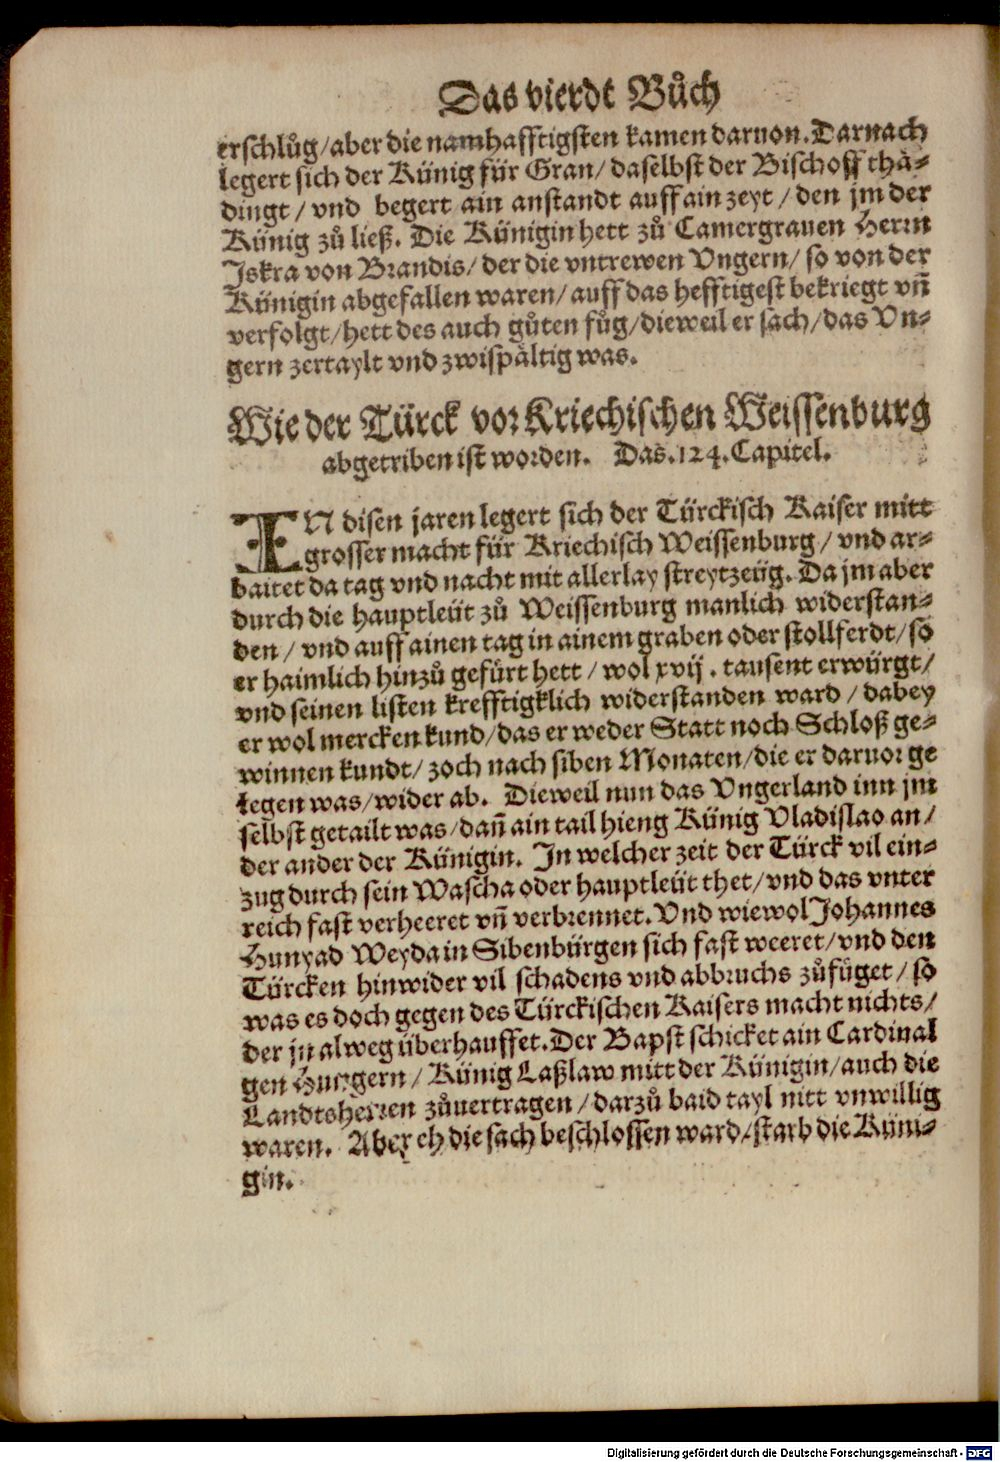 Das vierdt Bůch
erschlůg/aber die namhafftigsten kamen daruon. Darnach
legert sich der Künig für Gran/ daselbst der Bischoff thä-
dingt/ vnd begert ain anstandt auff ain zeyt/ den jm der
Künig zů ließ. Die Künigin hett zů Camergrauen Herrn
Iskra von Brandis/ der die vntrewen Vngern/ so von der
Künigin abgefallen waren/ auff das hefftigest bekriegt vñ
verfolgt/hett des auch gůten fůg/dieweil er sach/das Vn-
gern zertaylt vnd zwispältig was.
Wie der Türck vor Kriechischen Weissenburg
abgetriben ist worden. Das .124. Capitel.
IN disen jaren legert sich der Türckisch Kaiser mitt
grosser macht für Kriechisch Weissenburg/ vnd ar-
baitet da tag vnd nacht mit allerlay streytzeüg. Da jm aber
durch die hauptleüt zů Weissenburg manlich widerstan-
den/ vnd auff ainen tag in ainem graben oder stollferdt/ so
er haimlich hinzů gefürt hett/ wol xvij. tausent erwürgt/
vnd seinen listen krefftigklich widerstanden ward/ dabey
er wol mercken kund/das er weder Statt noch Schloß ge-
winnen kundt/ zoch nach siben Monaten/die er daruor ge
legen was/wider ab. Dieweil nun das Vngerland inn jm
selbst getailt was/dañ ain tail hieng Künig Vladislao an/
der ander der Künigin. In welcher zeit der Türck vil ein-
zug durch sein Wascha oder hauptleüt thet/vnd das vnter
reich fast verheeret vñ verbrennet. Vnd wiewol Johannes
Hunyad Weyda in Sibenbürgen sich fast weeret/vnd den
Türcken hinwider vil schadens vnd abbruchs zůfüget/ so
was es doch gegen des Türckischen Kaisers macht nichts/
der jn alweg überhauffet. Der Bapst schicket ain Cardinal
gen Hungern/ Künig Laßlaw mitt der Künigin/auch die
Landtsherren zůuertragen/darzů baid tayl nitt vnwillig
waren. Aber eh die sach beschlossen ward/starb die Küni-
gin.
Digitalisierung gefördert durch die Deutsche Forschungsgemeinschaft - DFG